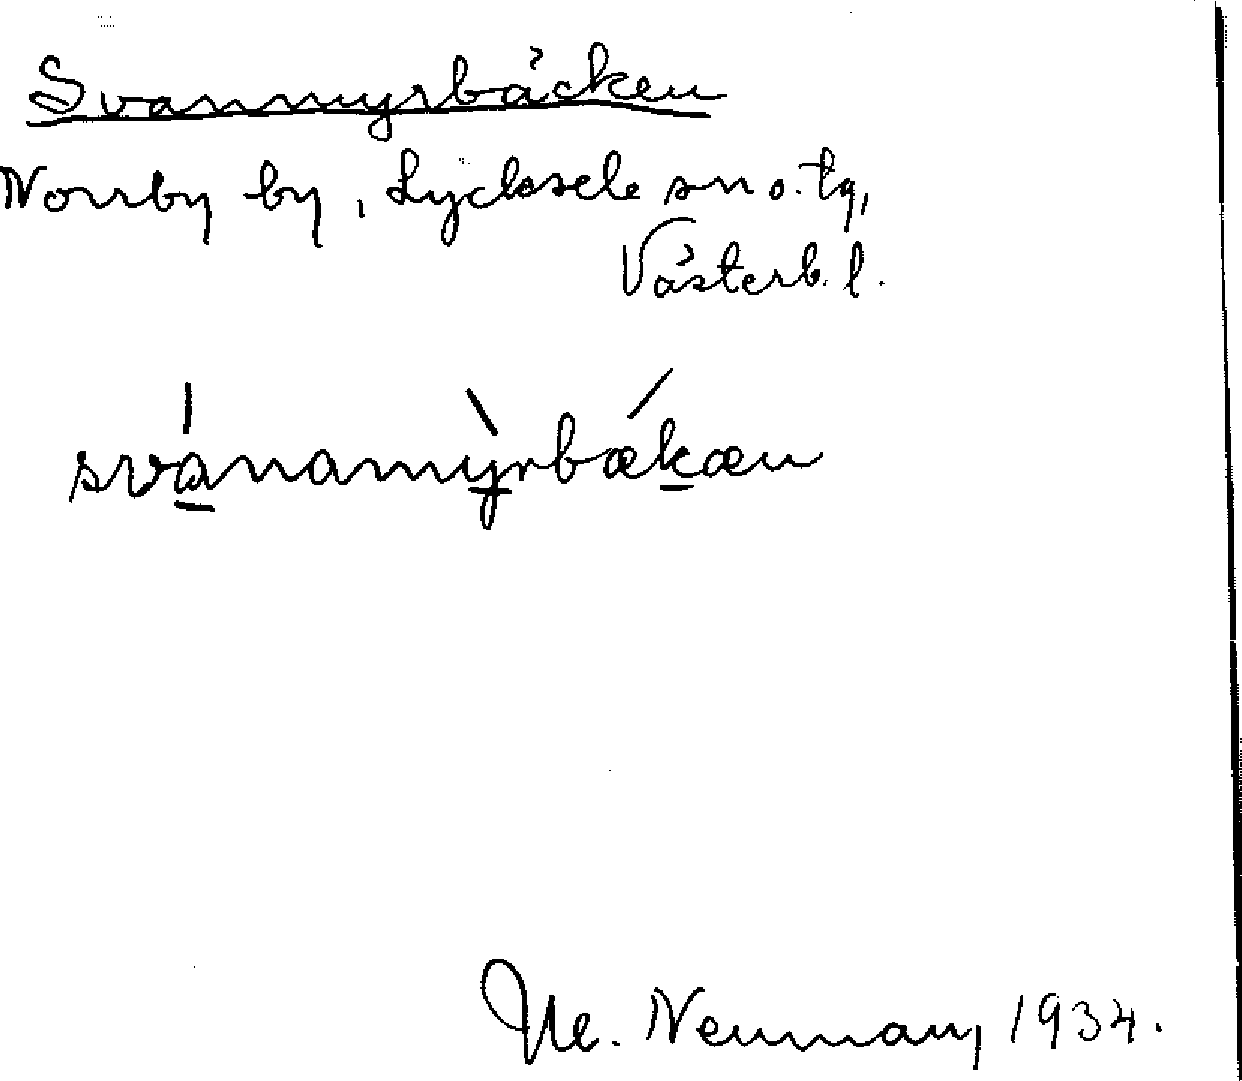 Svanmyrbäcken
Norrby by, Lycksele sn o. tg,
Västerb. l.
svánamỳ̱rbæḱæn
Ne. Neuman, 1934.